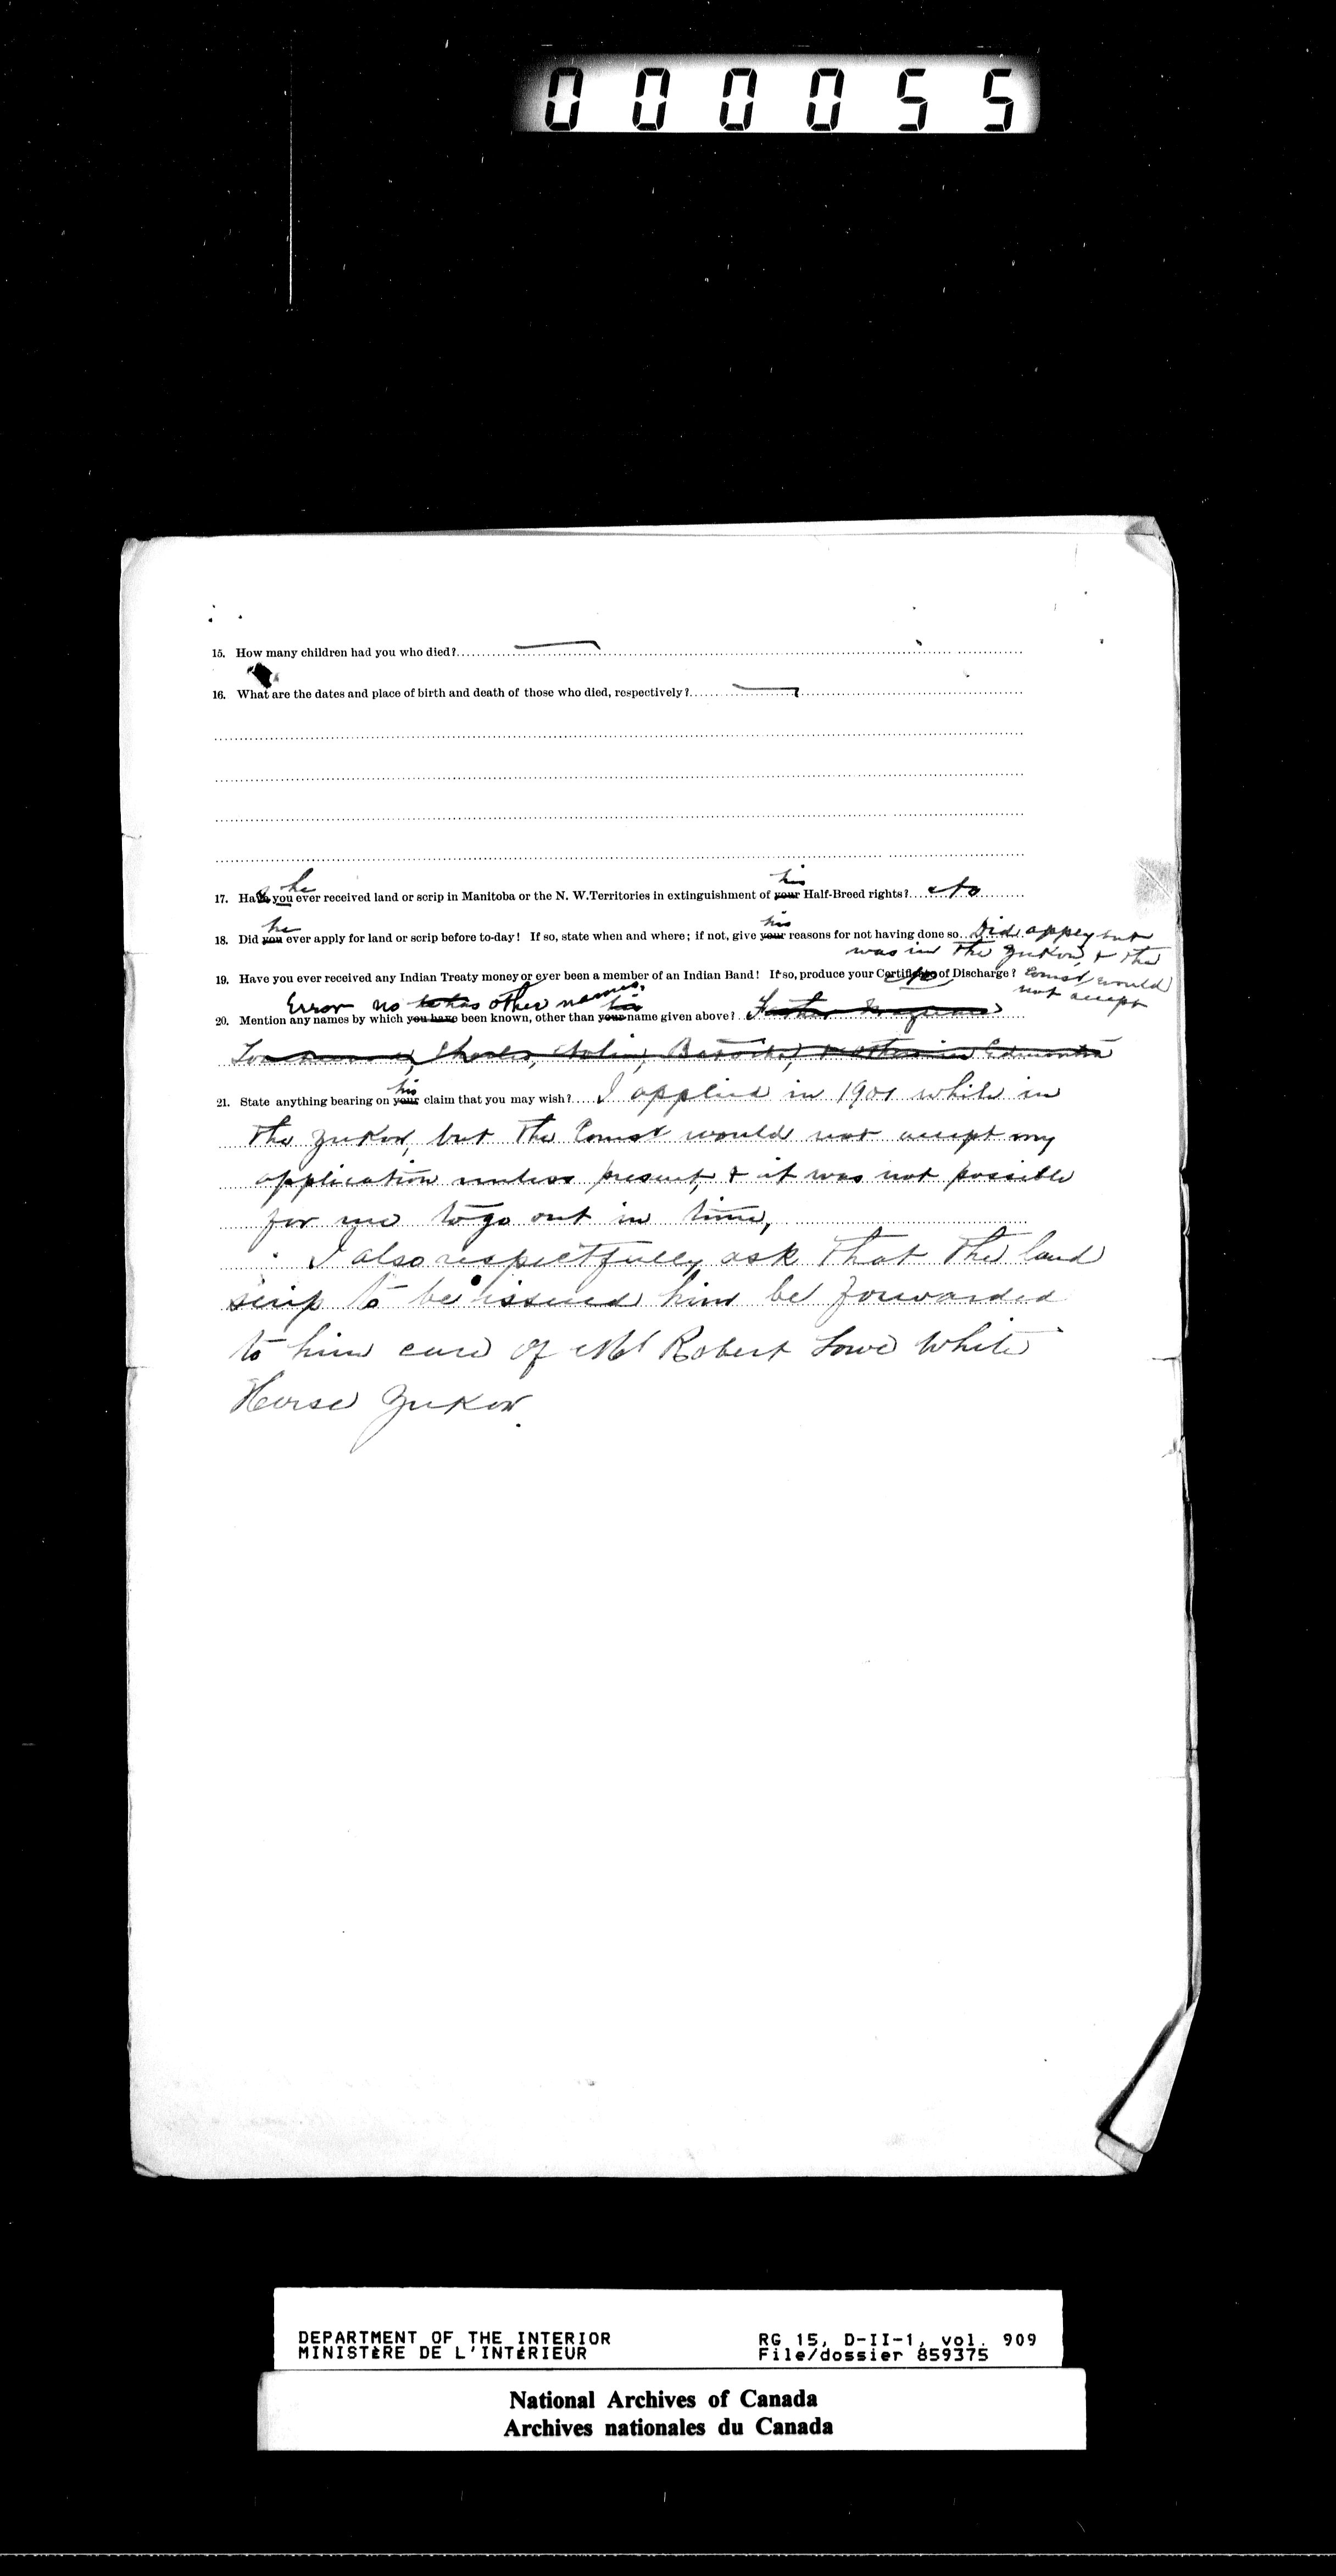 000055
15. How many children had you who died?
16. What are the dates and place of birth and death of those who died, respectively?
s he his
17. Have you ever received land or scrip in Manitoba or the N. W. Territories in extinguishment of your Half-Breed rights? No
he his
18. Did you ever apply for land or scrip before to-day! If so, state when and where; if not, give your reasons for not having done so. Did appey but
was in the Yukon, & the
19. Have you ever received any Indian Treaty money or ever been a member of an Indian Band! If so, produce your Certificate of Discharge? No Comst would
not accept
Error no other names. his
20. Mention any names by which you have been known, other than your name given above?
Charles, Edmonton
his
21. State anything bearing on your claim that you may wish? I applied in 1901 while in
the Yukon, but the Comst would not accept my
application unless present, & it was not possible
for me to go out in time,
I also respectfully ask that the land
scrip to be issued him be forwarded
to him care of Mr Robert Lowe White
Horse Yukon.
DEPARTMENT OF THE INTERIOR
MINISTÈRE DE L'INTÉRIEUR
RG 15, D-II-1, vol. 909
File/dossier 859375
National Archives of Canada
Archives nationales du Canada